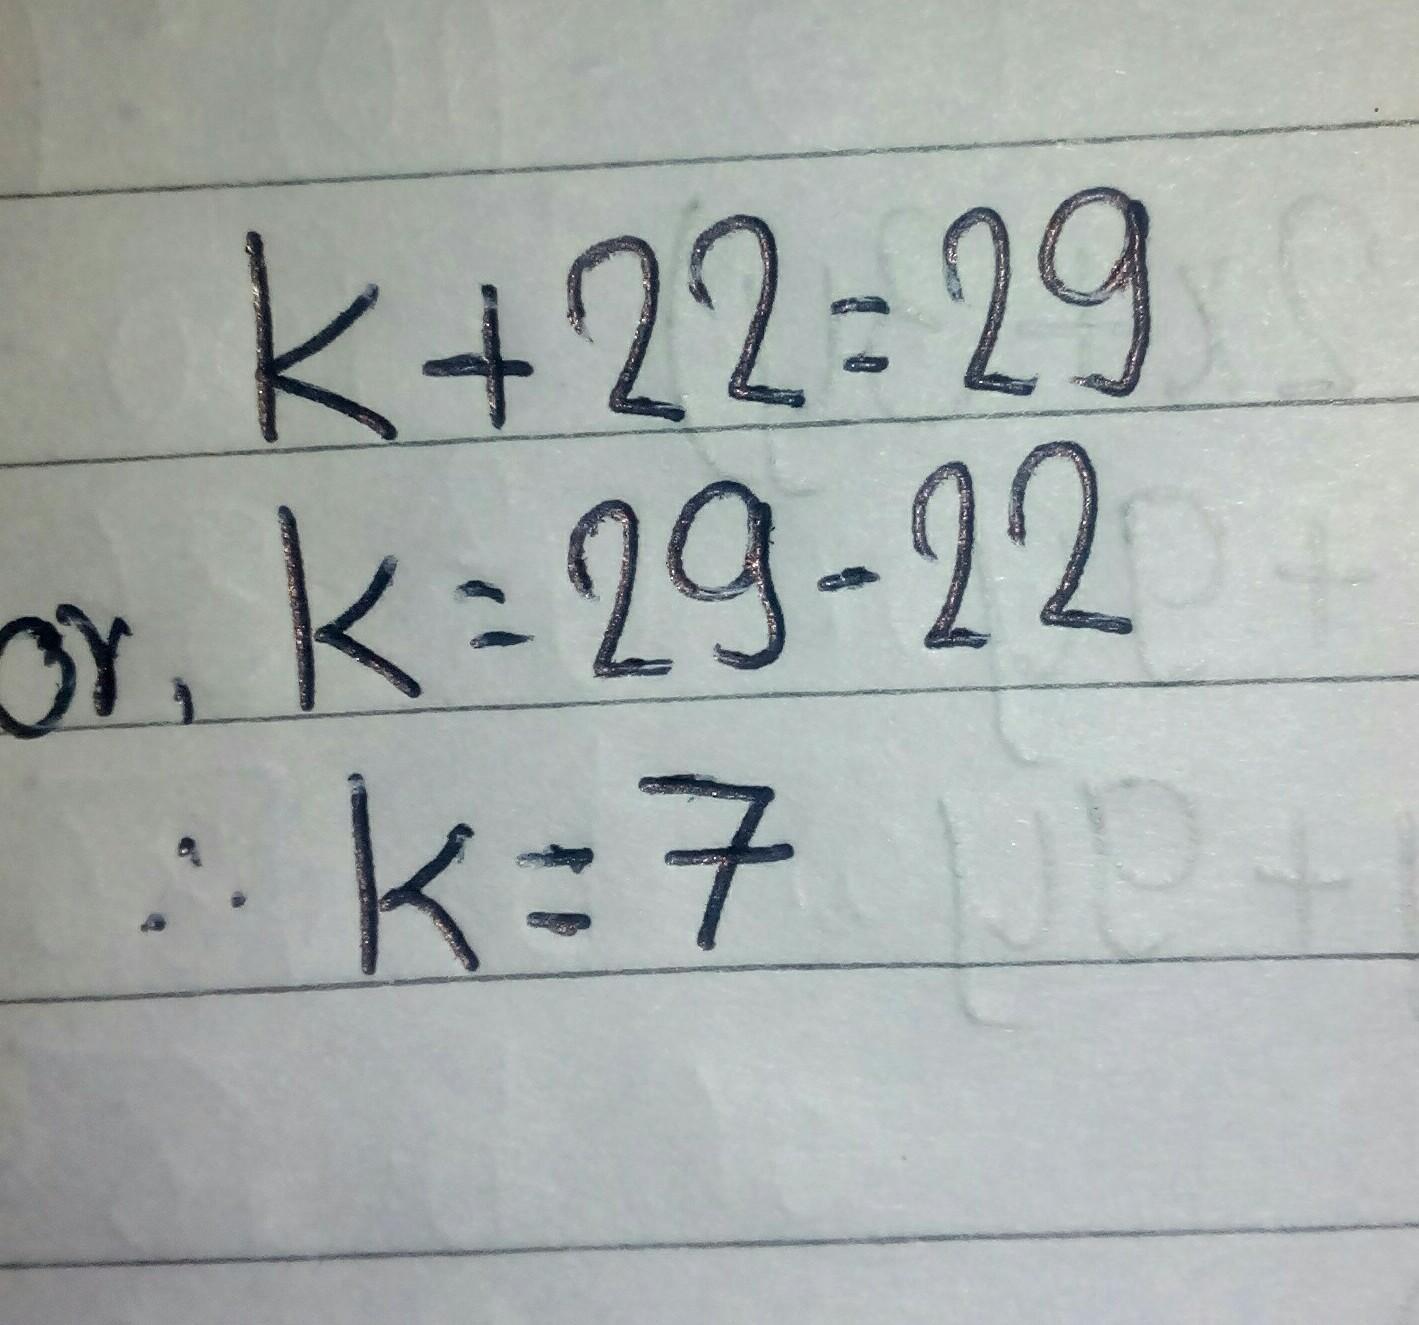 k+22=29
or, k=29-22
∴ k=7